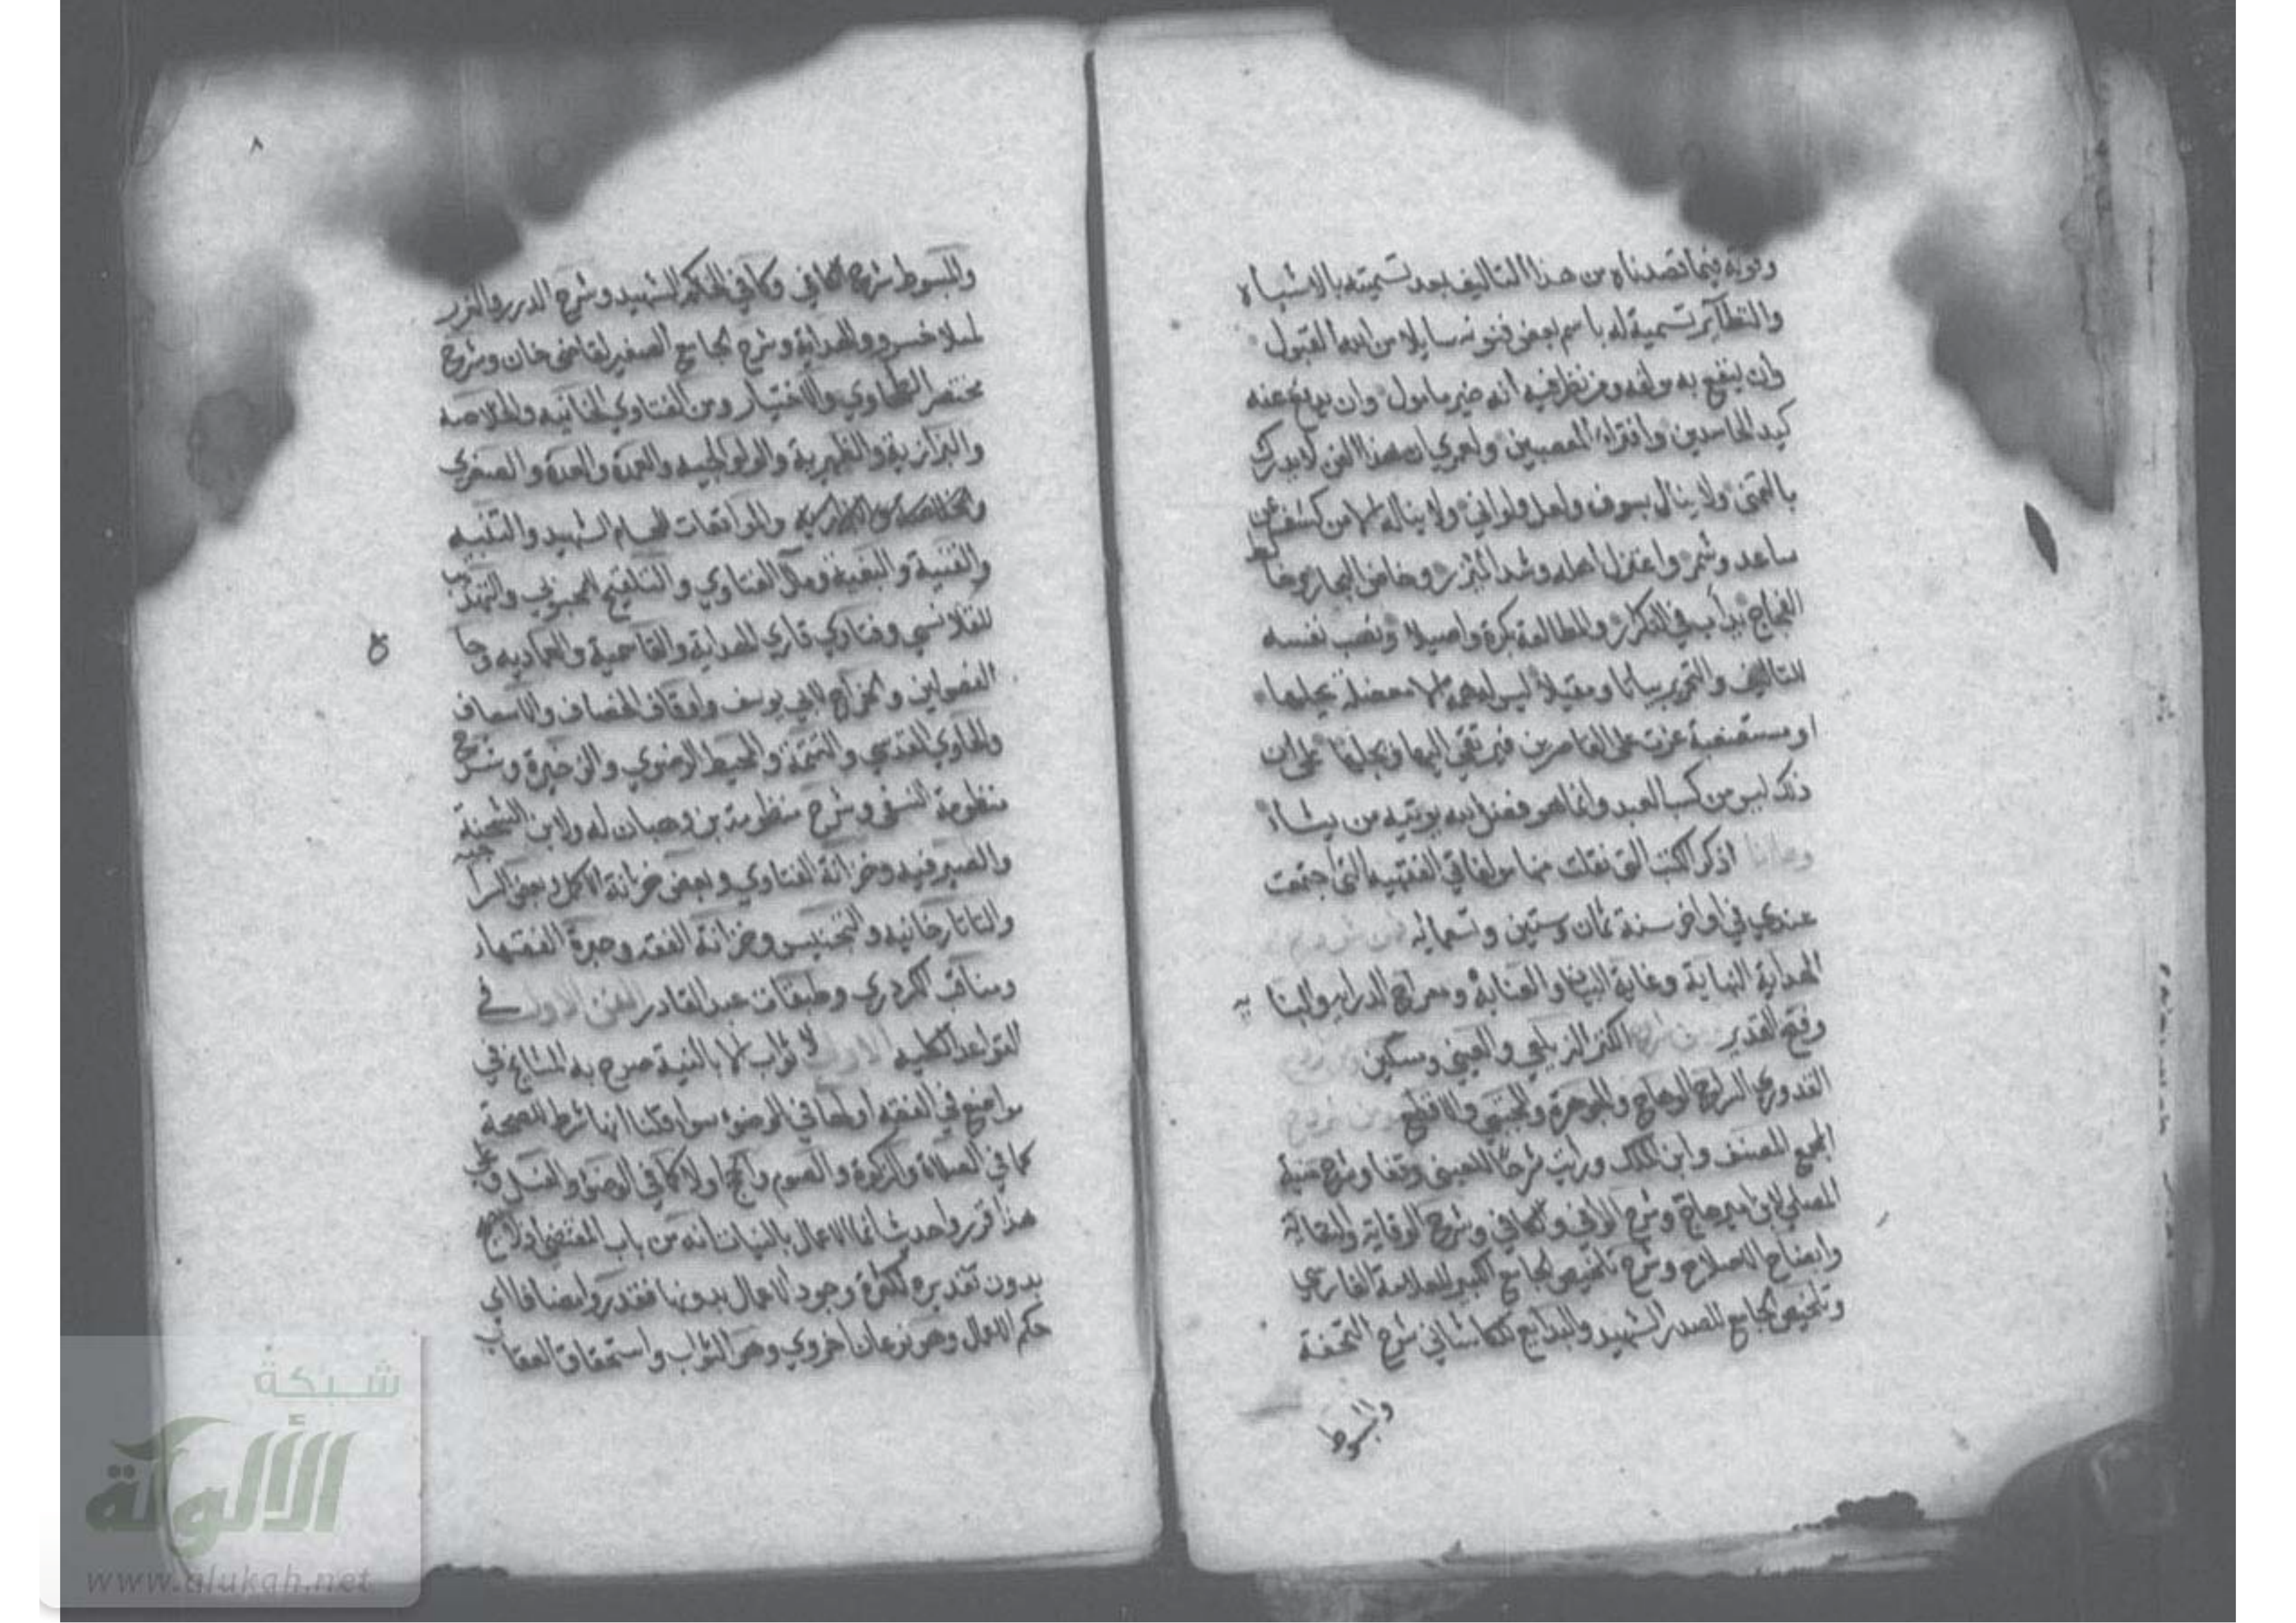 وقوته فيما قصدناه من هذا التاليف بعد تسميته بالاشباه
والنظآير تسمية له باسم بعض فنونه سايلا من الله القبول
وان ينفع به مولفه ومن نظر فيه انه خير مامول وان يدفع عنه
كيد الحاسدين وافتراء المتعصبين ولعمري ان هذا الفن لا يدرك
بالتمنى ولا ينال بسوف ولعل ولو اني ولا يناله الا من كشف عن
ساعد وشمر واعتزل اهله وشد المئزر وخاض البحار وخالط
العجاج يدأب في التكرار والمطالعة بكرة واصيلا ونصب نفسه
للتاليف والتحرير بياتا ومقيلا ليس له همة الا معضلة يحلها
او مستصعبة عزت على القاصرين فيرتقي اليها ويحلها على ان
ذلك ليس من كسب العبد وانما هو فضل الله يوتيه من يشاء
وها انا اذكر الكتب التي نقلت منها مولفاتي الفقهيه التي اجتمعت
عندي في اواخر سنة ثمان وستين وتسعمايه
الهداية النهاية وغاية البيان والعناية ومعراج الدرايه والبنايه
وفتح القدير ومن شروح الكنز الزيلعي والعيني ومسكين
القدوري السراج الوهاج والجوهرة والمجتبى والاقطع ومن شروح
المجمع للمصنف وابن الملك ورايت شرحا للعيني وقفا وشرح منية
المصلي لابن امير حاج وشرح الوافي والكافي وشرح الوقاية والنقاية
وايضاح الاصلاح وشرح تلخيص الجامع الكبير للعلامة الفارسي
وتلخيص الجامع للصدر الشهيد والبدايع للكاساني شرح التحفة
والمبسوط
٨
والمبسوط شرح الكافي وكافي الحاكم الشهيد وشرح الدرر والغرر
لملا خسرو والهداية وشرح الجامع الصغير لقاضي خان وشرح
مختصر الطحاوي والاختيار ومن الفتاوي الخانيه والخلاصه
والبزازية والظهيرية والولوالجيه والعمدة والعدة والصغرى
والواقعات للحسام الشهيد والقنيه
والغنية والبغية ومآل الفتاوي والتلقيح للمحبوبي والتهذيب
للقلانسي وفتاوي قاري الهداية والقاسمية والعماديه وجا
الفصولين والخراج لابي يوسف واوقاف الخصاف والاسعاف
والحاوي القدسي والتتمة والمحيط الرضوي والذخيرة وشرح
منظومة النسفي وشرح منظومة بن وهبان له ولابن الشحنة
والصيرفيه وخزانة الفتاوي وبعض خزانة الاكمل وبعض السراجيه
والتاتارخانيه والتجنيس وخزانة الفقه وحيرة الفقهاء
ومناقب الكردري وطبقات عبد القادر الفن الاول في
القواعد الكليه الاولى لا ثواب الا بالنية صرح به المشايخ في
مواضع في الفقه اولها في الوضوء سوا قلنا انها شرط الصحة
كما في الصلاة والزكوة والصوم والحج اولا كما في الوضوء والغسل وعلى
هذا قرروا حديث انما الاعمال بالنيات انه من باب المقتضى اذ لا يصح
بدون تقديره لكثرة وجود الاعمال بدونها فقدروا مضافا اي
حكم الاعمال وهو نوعان اخروي وهو الثواب واستحقاق العقاب
شبكة
الألوكة
www.alukah.net